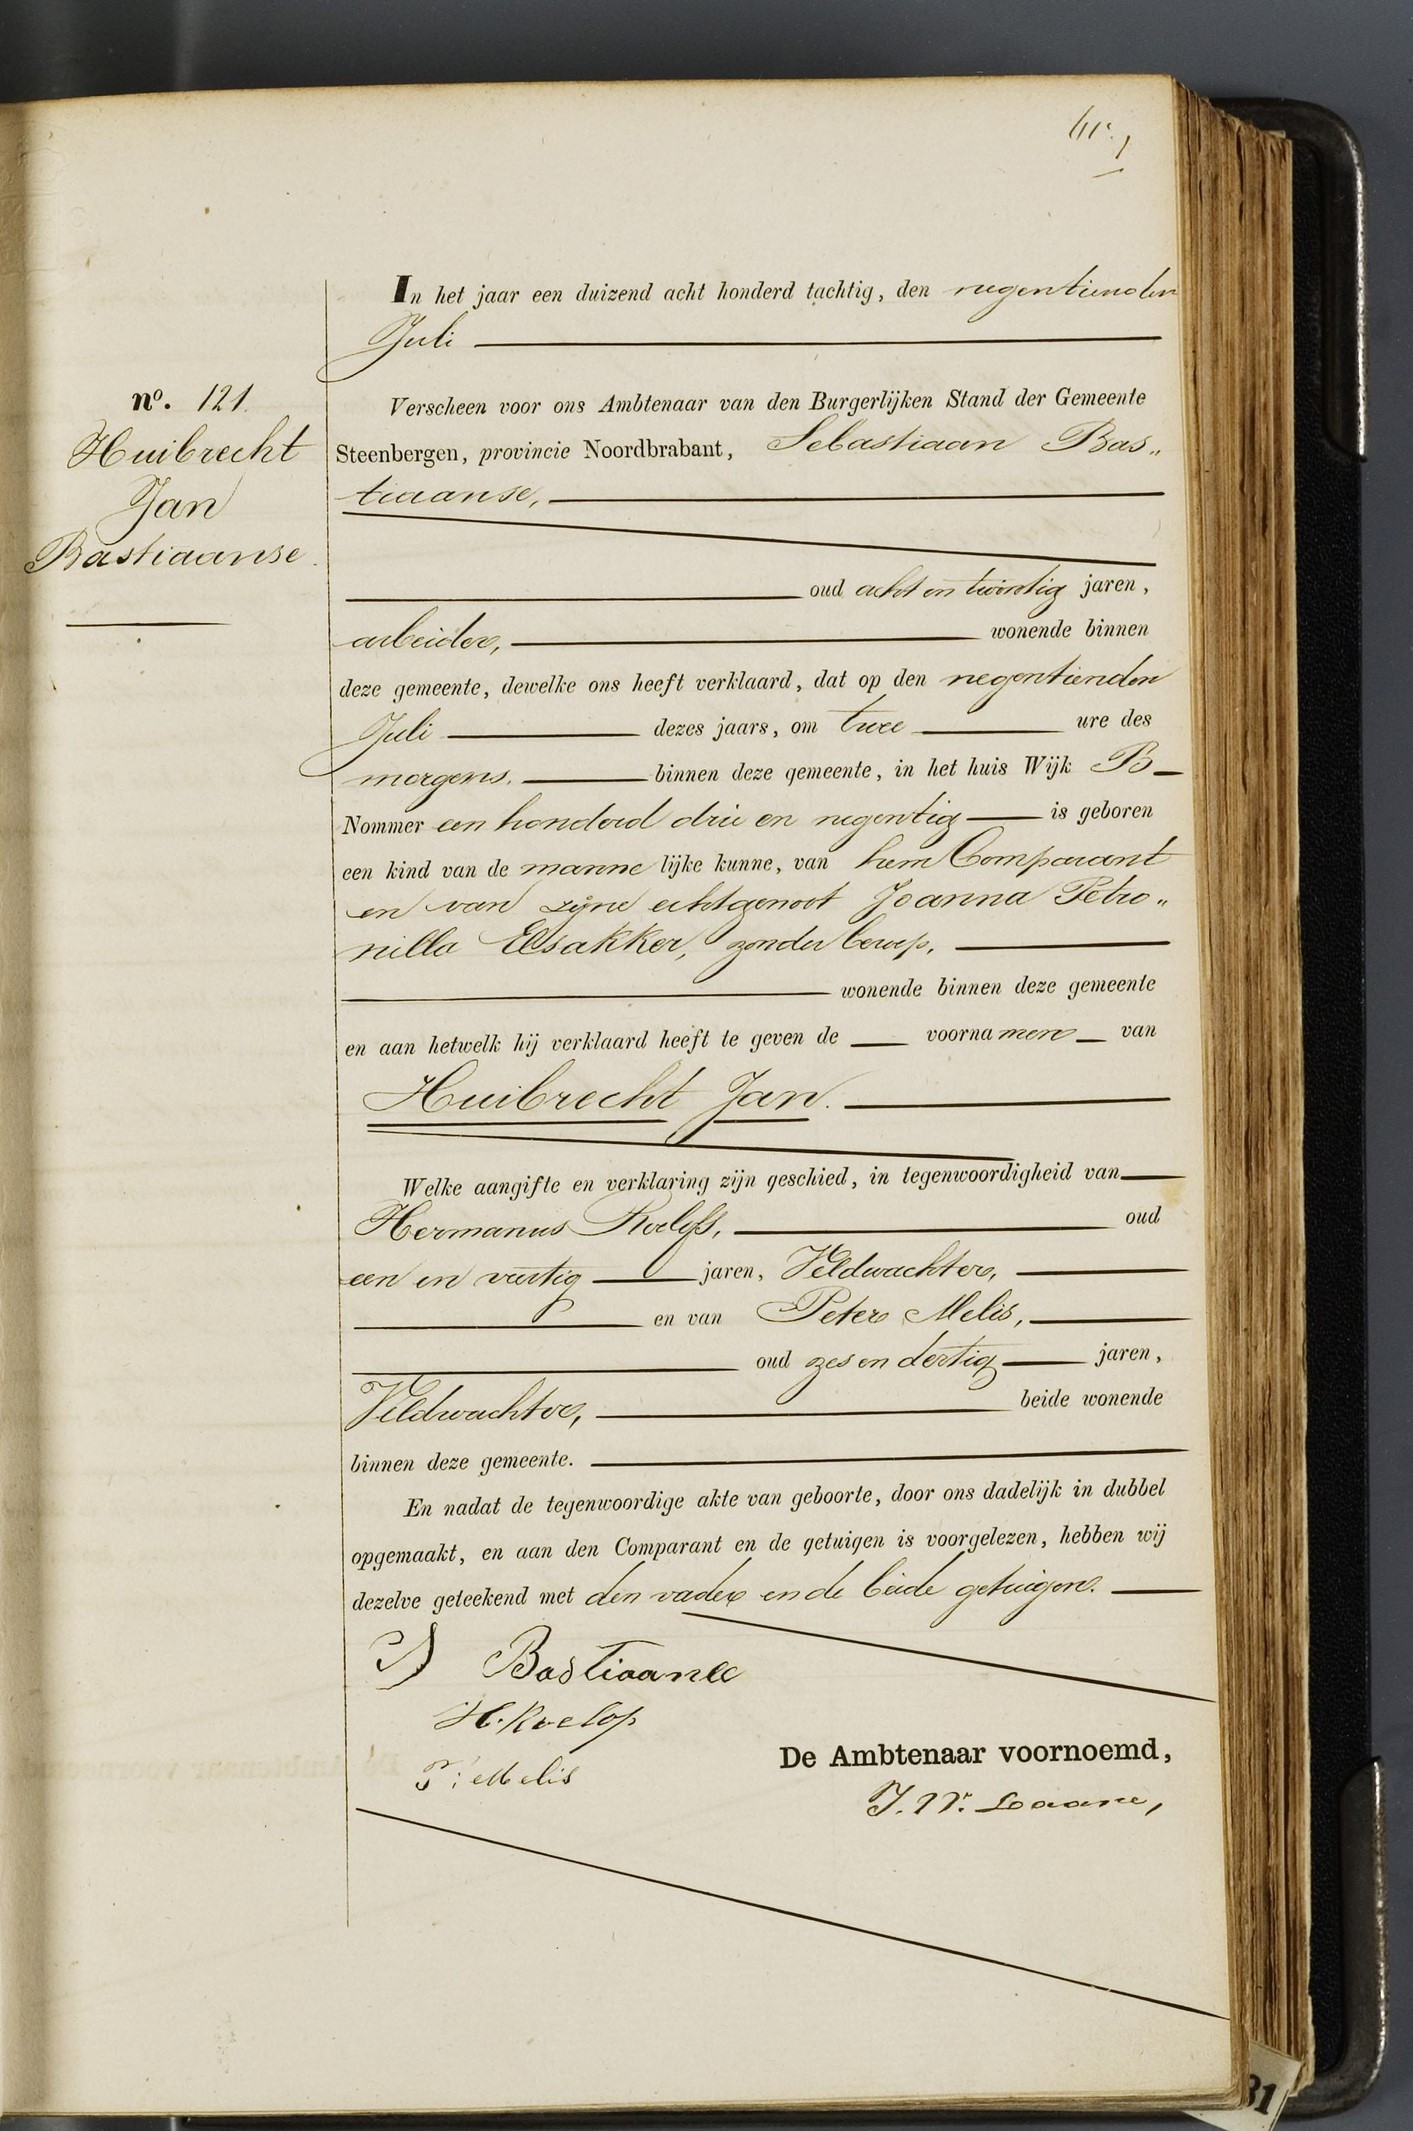 In het jaar een duizend acht honderd tachtig, den negentienden
Juli
nº. 121.
Huibrecht
Jan
Bastiaanse.
Verscheen voor ons Ambtenaar van den Burgerlijken Stand der Gemeente
Steenbergen, provincie Noordbrabant, Sebastiaan Bas„
tiaanse,
oud acht en twintig jaren,
arbeider, wonende binnen
deze gemeente, dewelke ons heeft verklaard, dat op den negentienden
Juli dezes jaars, om twee ure des
morgens, binnen deze gemeente, in het huis Wijk B
Nommer een honderd drie en negentig is geboren
een kind van de mannelijke kunne, van hem Comparant
en van zijne echtgenoot Joanna Petro„
nilla Elsakker, zonder beroep,
wonende binnen deze gemeente
en aan hetwelk hij verklaard heeft te geven de voornamen van
Huibrecht Jan.
Welke aangifte en verklaring zijn geschied, in tegenwoordigheid van
Hermanus Roelofs, oud
een en veertig jaren, Veldwachter,
en van Peter Melis,
oud zes en dertig jaren,
Veldwachter, beide wonende
binnen deze gemeente.
En nadat de tegenwoordige akte van geboorte, door ons dadelijk in dubbel
opgemaakt, en aan den Comparant en de getuigen is voorgelezen, hebben wij
dezelve geteekend met den vader en de beide getuigen.
S Bastiaanse
H. Roelofs
P: Melis
De Ambtenaar voornoemd,
J. W. Loaane,
31